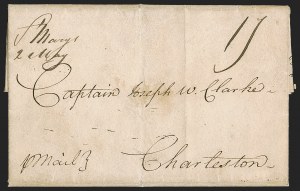 St Marys
2 May
17
Captain Joseph W. Clarke
Mail
Charleston